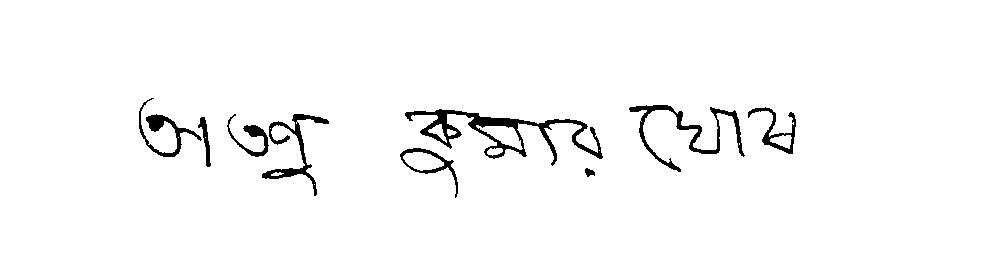 অতনু কুমার ঘোষ